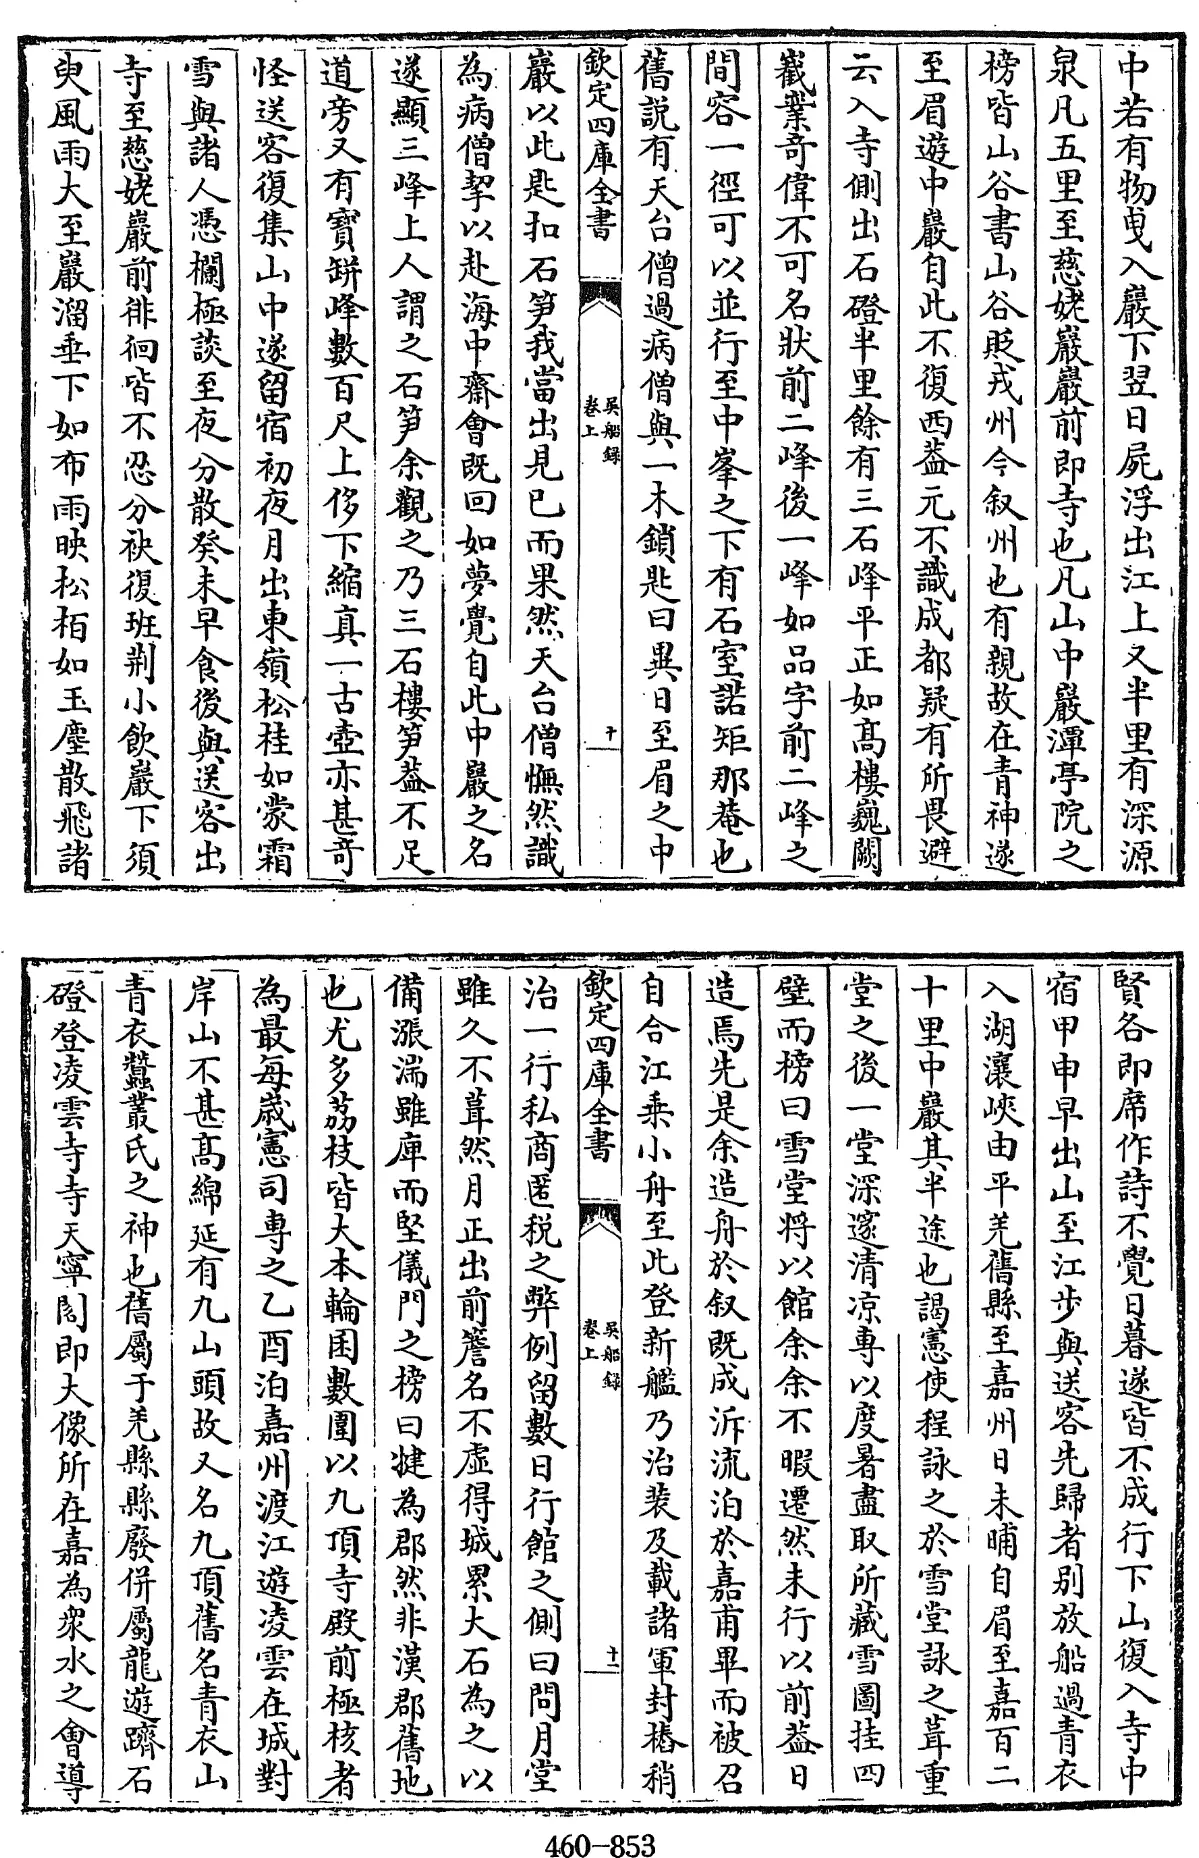 中若有物曳入巖下翌日屍浮出江上又半里有深源
泉凡五里至慈姥巖巖前即寺也凡山中巖潭亭院之
榜皆山谷書山谷貶戎州今叙州也有親故在青神遂
至眉遊中巖自此不復西葢元不識成都疑有所畏避
云入寺側出石磴半里餘有三石峰平正如髙樓巍闕
巀嶪奇偉不可名狀前二峰後一峰如品字前二峰之
間容一徑可以並行至中峯之下有石室諾矩那菴也
舊説有天台僧過病僧與一木鎖匙曰異日至眉之中
欽定四庫全書
吳船録
卷上
十
巖以此匙扣石笋我當出見已而果然天台僧憮然識
為病僧挈以赴海中齋會既回如夢覺自此中巖之名
遂顯三峰上人謂之石笋余觀之乃三石樓笋葢不足
道旁又有寳缾峰數百尺上侈下縮真一古壺亦甚奇
怪送客復集山中遂留宿初夜月出東嶺松桂如蒙霜
雪與諸人憑欄極談至夜分散癸未早食後與送客出
寺至慈姥巖前徘徊皆不忍分袂復班荆小飲巖下須
臾風雨大至巖溜垂下如布雨映松栢如玉塵散飛諸
賢各即席作詩不覺日暮遂皆不成行下山復入寺中
宿甲申早出山至江步與送客先歸者别放船過青衣
入湖瀼峽由平羌舊縣至嘉州日未晡自眉至嘉百二
十里中巖其半途也謁憲使程詠之於雪堂詠之葺重
堂之後一堂深邃清凉専以度暑盡取所藏雪圖挂四
壁而榜曰雪堂将以館余余不暇遷然未行以前葢日
造焉先是余造舟於叙既成泝流泊於嘉甫畢而被召
自合江乗小舟至此登新艦乃治装及載諸軍封樁稍
欽定四庫全書
吳船録
卷上
十一
治一行私商匿税之弊例留數日行館之側曰問月堂
雖久不葺然月正出前簷名不虚得城累大石為之以
備漲湍雖庳而堅儀門之榜曰犍為郡然非漢郡舊地
也尤多荔枝皆大本輪囷數圍以九頂寺殿前極核者
為最每歳憲司専之乙酉泊嘉州渡江遊凌雲在城對
岸山不甚髙綿延有九山頭故又名九頂舊名青衣山
青衣蠶叢氏之神也舊屬于羌縣縣廢併屬龍遊躋石
磴登凌雲寺寺天寧閣即大像所在嘉為衆水之會導
460-853